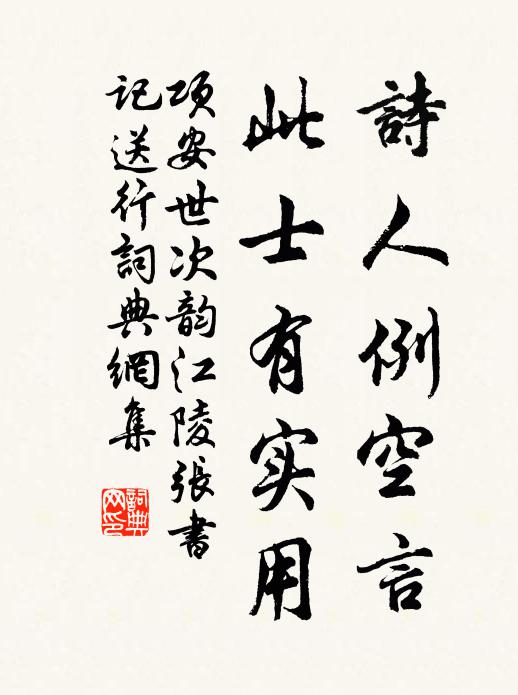 詩人例空言
此士有实用
项安世次韵江陵張書
记送行詞典網集
詞典网印